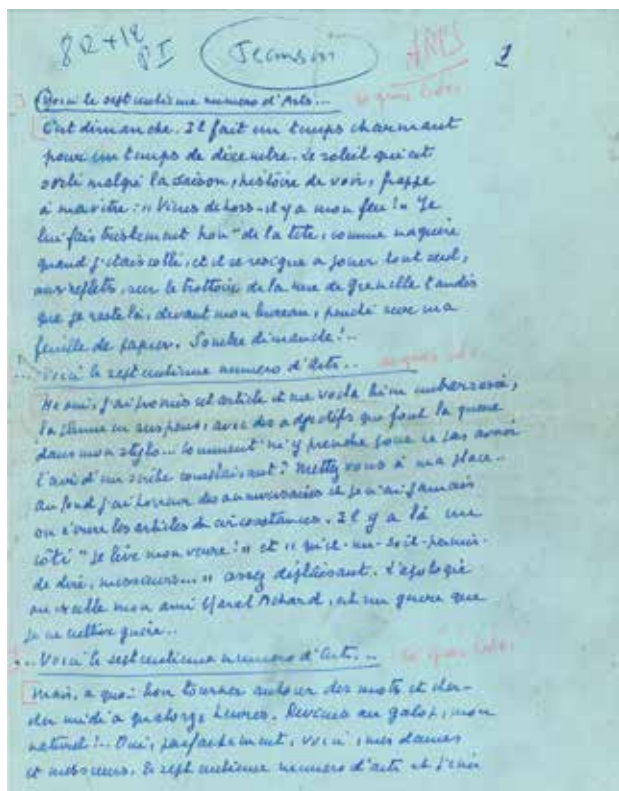 8 R + 12
P I
Jeanson
ARTS
1
Voici le sept centième numéro d'Arts...
en gras
C'est dimanche. Il fait un temps charmant
pour un temps de décembre. Le soleil qui est
sorti malgré la saison, histoire de voir, frappe
à ma vitre : " Viens dehors - il y a mon feu ! " Je
lui fais tristement non " de la tête, comme naguère
quand j'étais collé, et il se résigne à jouer tout seul,
aux reflets, sur le trottoir de la rue de Grenelle tandis
que je reste là, devant mon bureau, penché sur ma
feuille de papier. Sombre dimanche !..
... Voici le sept centième numéro d'Arts...
en gras
He oui, j'ai promis cet article et me voilà bien embarrassé,
la plume en suspens, avec des adjectifs qui font la queue
dans mon stylo... Comment m'y prendre pour ne pas avoir
l'air d'un complaisant ? Mettez vous à ma place..
au fond j'ai horreur des anniversaires et je n'ai jamais
les articles de circonstances. Il y a là un
côté " je lève mon verre ! " et " qu'il - me - soit - permis -
de dire, messieurs... " assez déplaisant. L'apologie
où excelle mon ami Marcel Achard, est un genre que
je ne cultive guère..
... Voici le sept centième numéro d'Arts...
en gras
Mais, a quoi bon tourner autour des mots et cher-
cher midi a quatorze heures. Reviens au galop, mon
naturel !.. Oui, parfaitement, voici, mes dames
et messieurs, le sept centième numéro d'arts et j'en